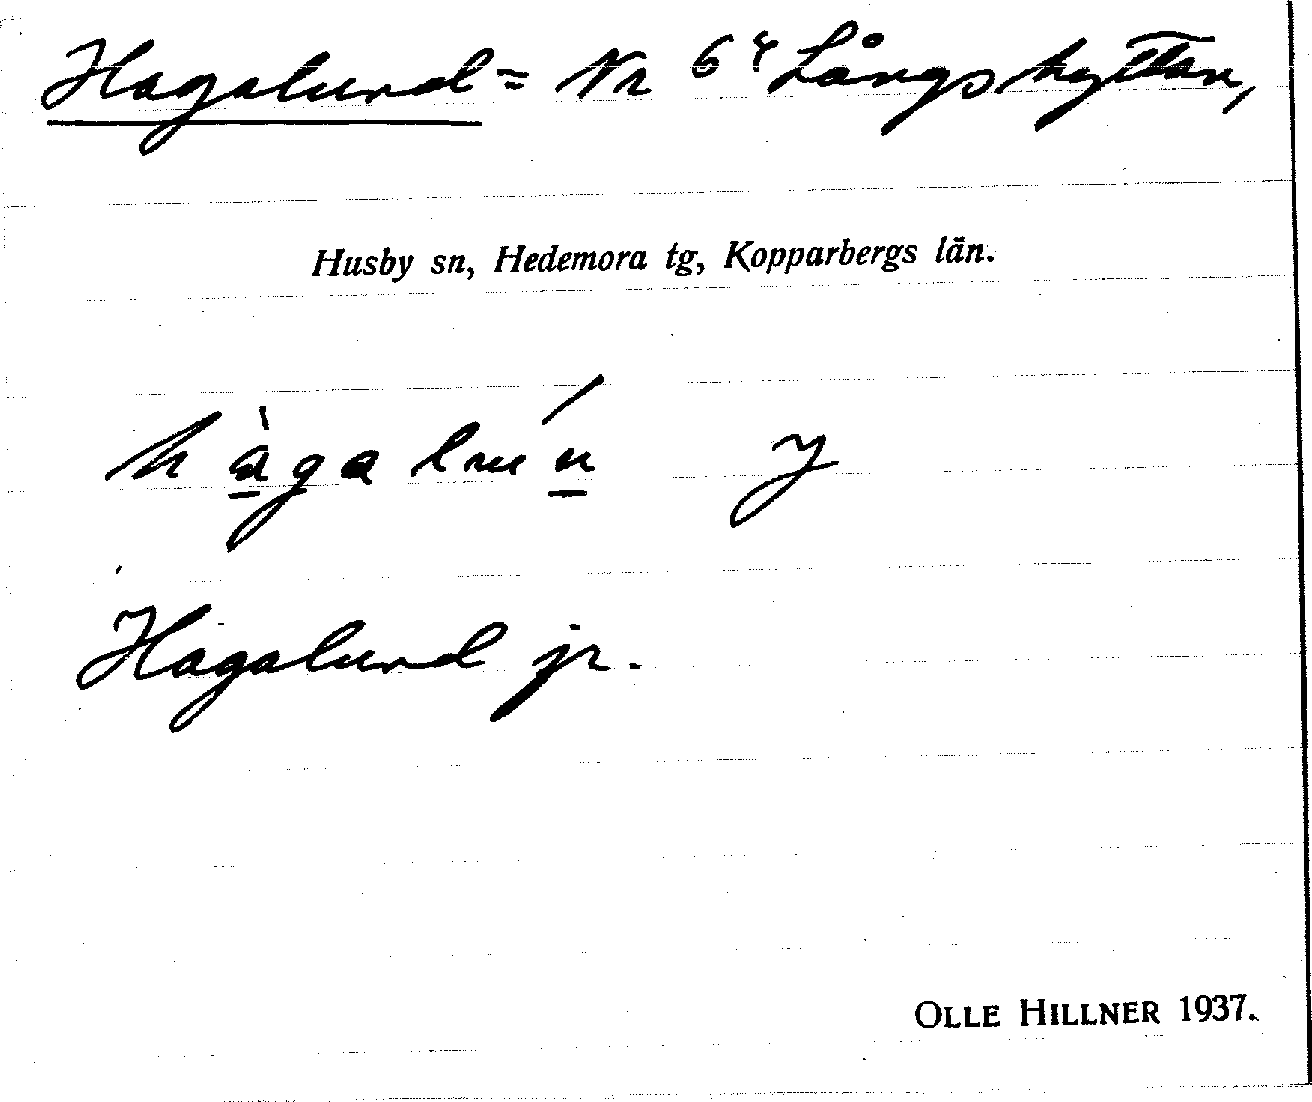 Hagalund = Nr 6 Långshyttan,
Husby sn, Hedemora tg, Kopparbergs län.
Hagalund jr.
OLLE HILLNER 1937.